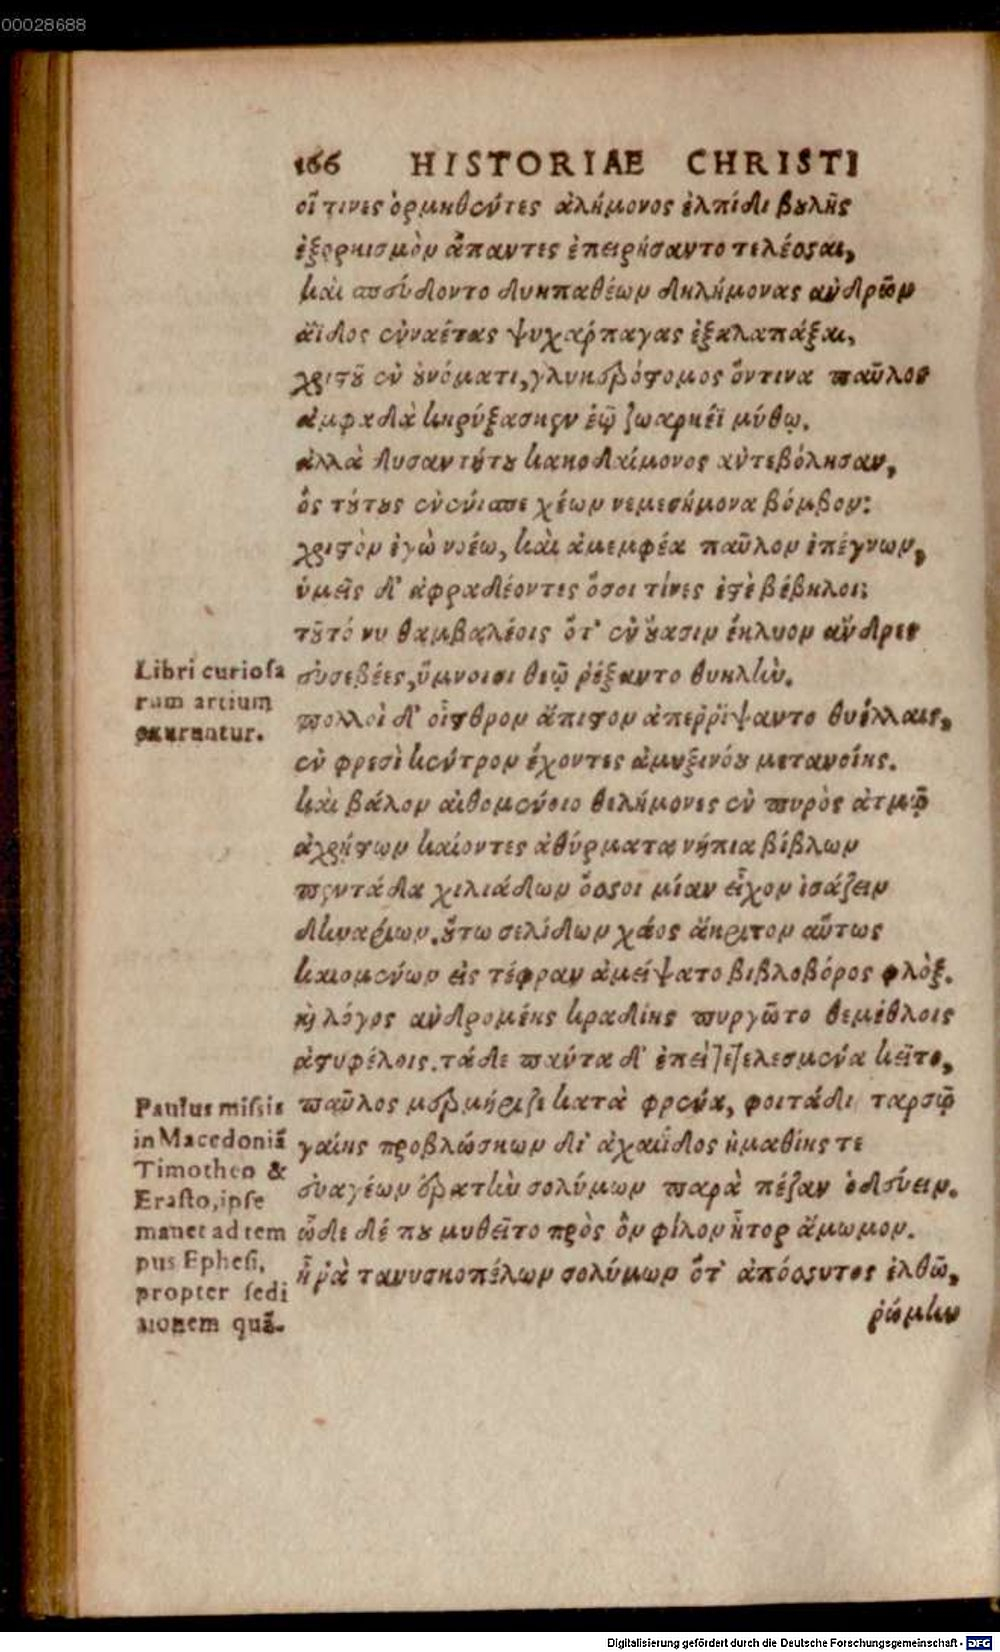 00028688
166 HISTORIAE CHRISTI
οἵ τινες ὁρμηθέντες ἀλήμονος ἐλπίδι βουλῆς
ἐξορκισμὸν ἅπαντες ἐπειρήσαντο τελέσσαι,
καὶ σπεύδοντο δυηπαθέων δηλήμονας ἀνδρῶν
ἄϊδος ἐνναέτας ψυχάρπαγας ἐξαλαπάξαι,
χριστοῦ ἐν οὐνόματι, γλυκερόστομος ὅντινα παῦλος
ἀμφαδὰ κηρύξασκεν ἑῷ ζωαρκέϊ μύθῳ.
ἀλλὰ λυσαν τούτου κακοδαίμονος αὐτεβόλησαν,
ὃς τούτους ἐνένισπε χέων νεμεσήμονα βόμβον:
χριστὸν ἐγὼ νοέω, καὶ ἀμεμφέα παῦλον ἐπέγνων,
ὑμεῖς δ' ἀφραδέοντες ὅσοι τίνες ἐστὲ βέβηλοι;
τοῦτό νυ θαμβαλέοις ὅτ' ἐν οὔασιν ἔκλυον ἄνδρες
εὐσεβέες, ὕμνοισι θεῷ ῥέξαντο θυηλήν.
πολλοὶ δ' οἶστρον ἄπιστον ἀπερρίψαντο θυέλλαις,
ἐν φρεσὶ κέντρον ἔχοντες ἀμυξινόου μετανοίης.
καὶ βάλον αἰθομένοιο θελήμονες ἐν πυρὸς ἀτμῷ
ἀχρήστων καίοντες ἀθύρματα νήπια βίβλων
πεντάδα χιλιάδων ὅσσοι μίαν εἶχον ἰσάζειν
δηναρίων. οὕτω σελίδων χάος ἄκριτον αὔτως
καιομένων εἰς τέφραν ἀμείψατο βιβλοβόρος φλόξ.
καὶ λόγος ἀνδρομέης κραδίης πυργῶτο θεμέθλοις
ἀστυφέλοις. τάδε πάντα δ' ἐπεὶ τετελεσμένα κεῖτο,
παῦλος μερμήριζε κατὰ φρένα, φοιτάδι ταρσῷ
γαίης προβλώσκων δι' ἀχαιΐδος ἠμαθίης τε
εὐαγέων ἐρατὴν σολύμων παρὰ πέζαν ὁδεύειν.
ὧδε δέ που μυθεῖτο πρὸς ὃν φίλον ἦτορ ἄμωμον.
ἦ ῥὰ τανυσκοπέλων σολύμων ὅτ' ἀπόσσυτος ἔλθω,
ῥώμην
Libri curiosa
rum artium
exuruntur.
Paulus missis
in Macedoniã
Timotheo &
Erasto, ipse
manet ad tem
pus Ephesi,
propter sedi
tionem quã.
Digitalisierung gefördert durch die Deutsche Forschungsgemeinschaft - DFG